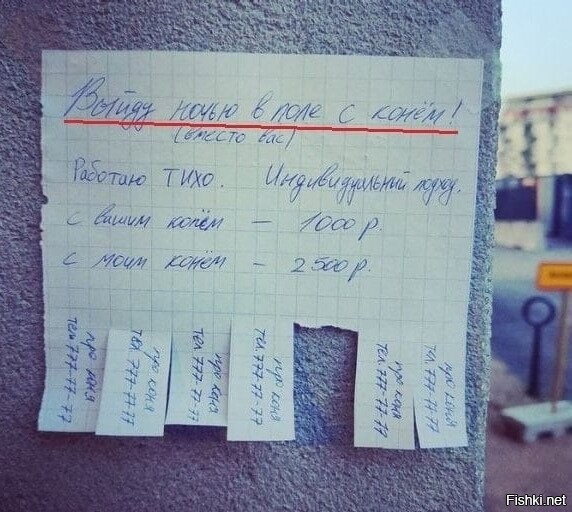 Выйду ночью в поле с конём!
(вместо вас)
Работаю ТИХО. Индивидуальный подход.
с вашим конём — 1000 р.
с моим конём — 2500 р.
про коня
тел 777-77-77
про коня
тел 777-77-77
про коня
тел 777-77-77
про коня
тел 777-77-77
про коня
тел 777-77-77
про коня
тел 777-77-77
Fishki.net